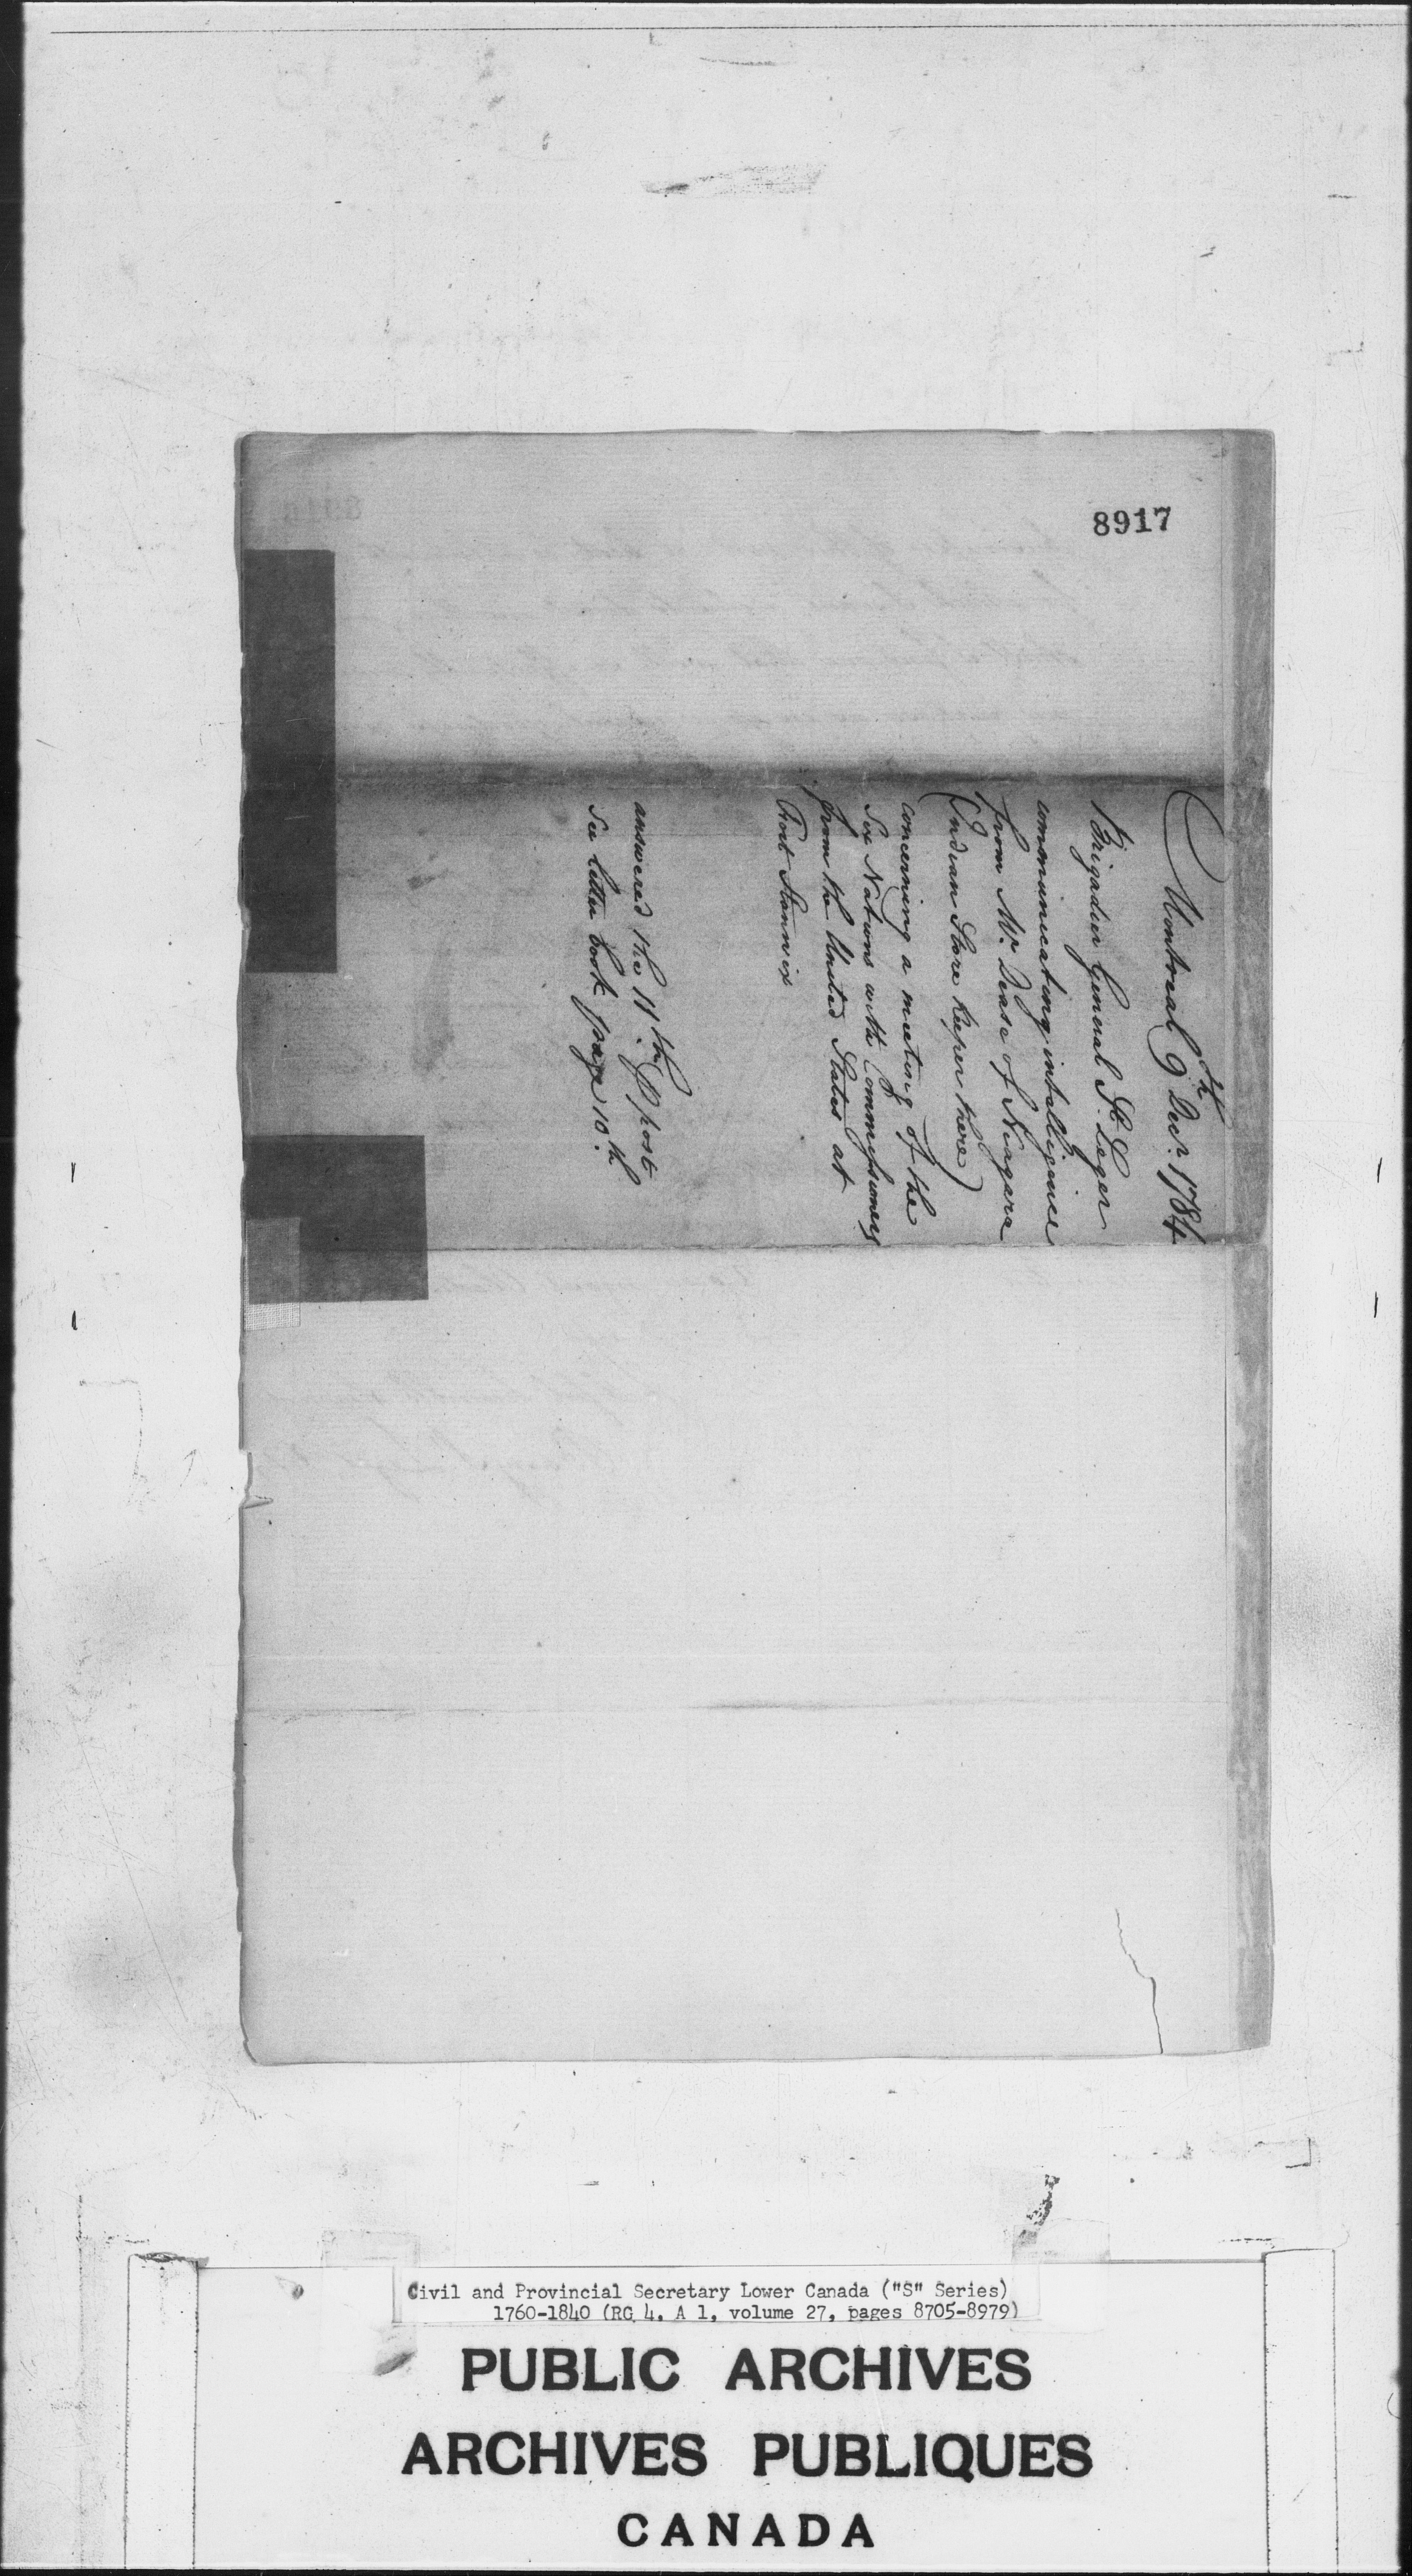 8917
Montreal 9th Decr. 1784
Brigadier General St. Leger
communicating intelligence
from Mr. Dease of Niagara
(Indian Store keeper there)
concerning a meeting of the
Six Nations with Commissioners
from the United States at
Fort Stanwix
answered the 11th. P post
see letter book page 10th.
Civil and Provincial Secretary Lower Canada ("S" Series)
1760-1840 (RG 4, A 1, volume 27, pages 8705-8979)
PUBLIC ARCHIVES
ARCHIVES PUBLIQUES
CANADA